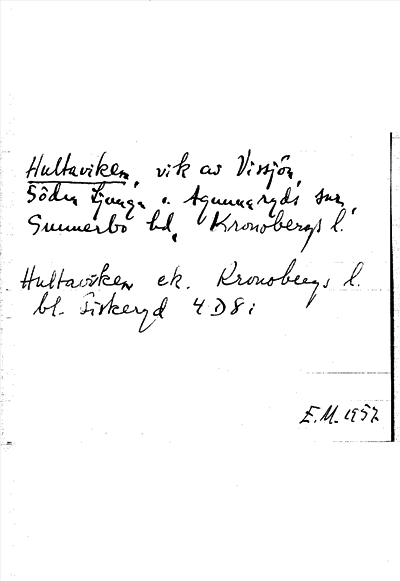 Hultaviken, vik av Vissjön,
Södra Ljunga o. Agunnaryds snr,
Sunnerbo hd, Kronobergs l.
Hultaviken ek. Kronobergs l.
bl. 4 D 8 i
E.M. 1957